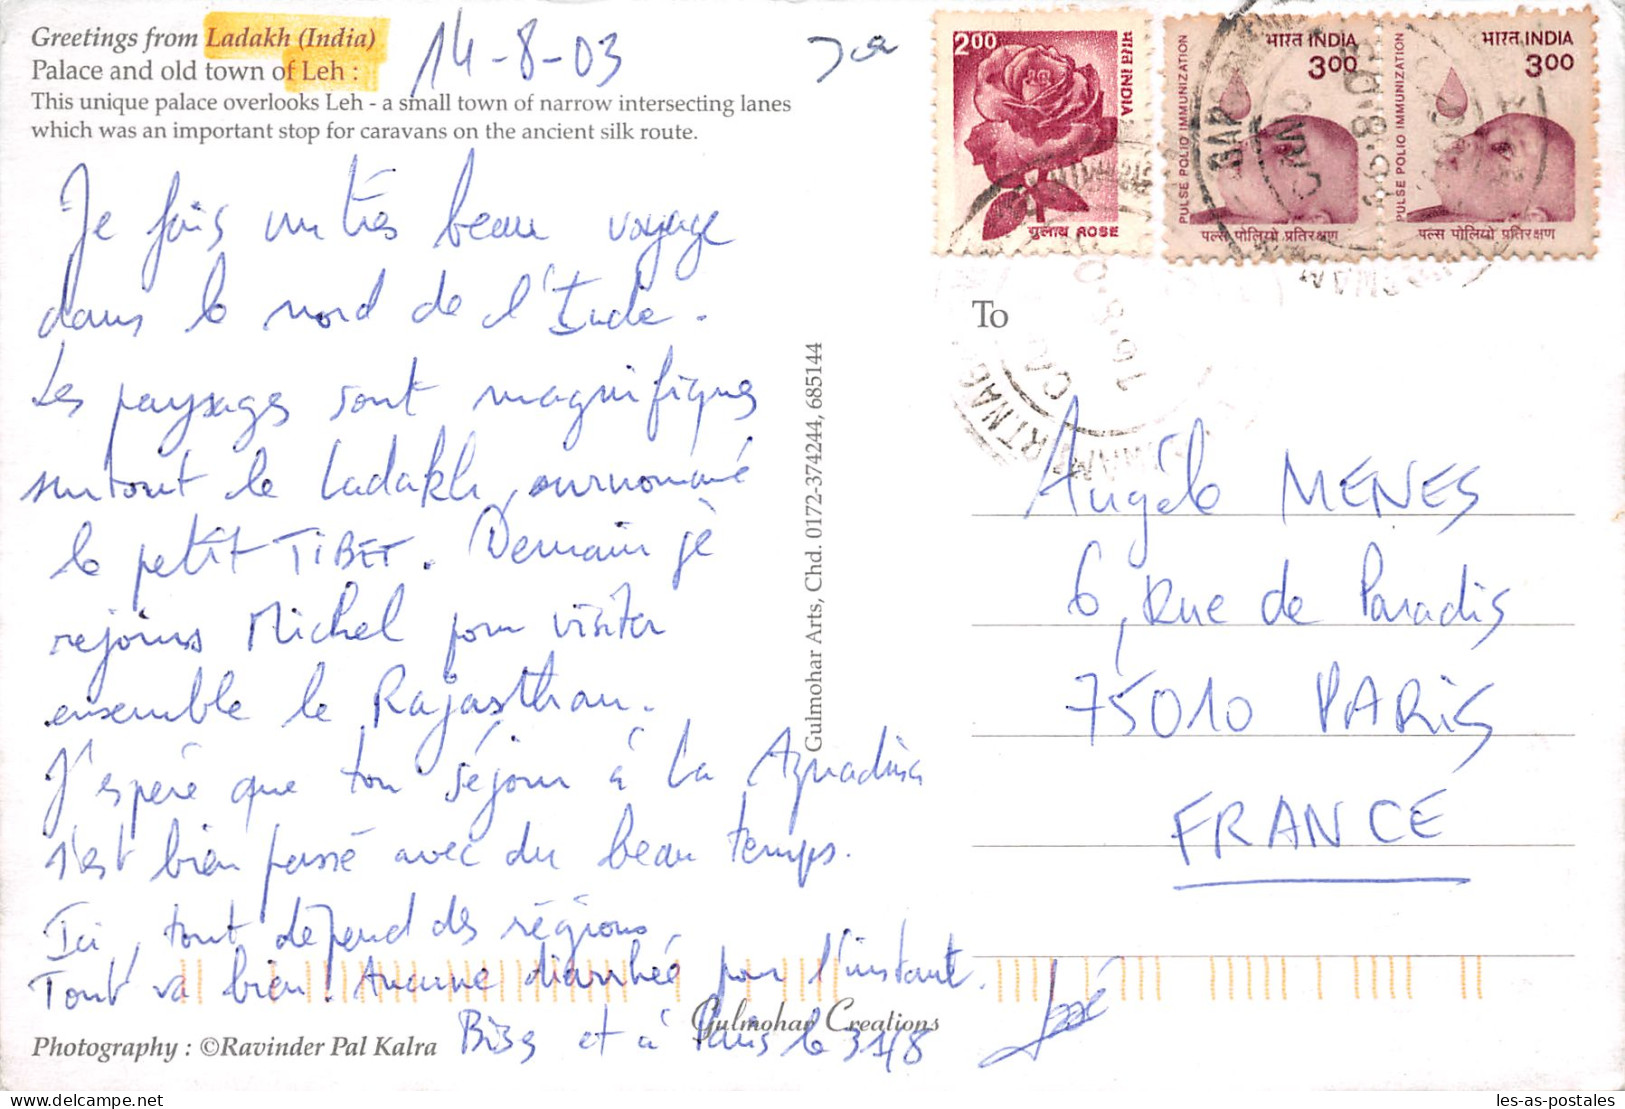 Greetings from Ladakh (India)
Palace and old town of Leh :
This unique palace overlooks Leh - a small town of narrow intersecting lanes
which was an important stop for caravans on the ancient silk route.
14-8-03
Je fais un très beau voyage
dans le nord de l'Inde.
Les paysages sont magnifiques
surtout le Ladakh, surnommé
le petit TIBET. Demain je
rejoins Michel pour visiter
ensemble le Rajasthan.
J'espère que ton séjour à la
s'est bien passé avec du beau temps.
Ici, tout dépend des régions.
Tout va bien ! Aucune diarrhée pour l'instant.
et à Paris le 31/8
José
Photography : ©Ravinder Pal Kalra
Gulmohar Creations
Gulmohar Arts, Chd. 0172-374244, 685144
2.00
भारत INDIA
गुलाब ROSE
भारत INDIA
3.00
PULSE POLIO IMMUNIZATION
पल्स पोलियो प्रतिरक्षण
भारत INDIA
3.00
PULSE POLIO IMMUNIZATION
पल्स पोलियो प्रतिरक्षण
To
Angèle MENES
6, Rue de Paradis
75010 PARIS
FRANCE
les-as-postales